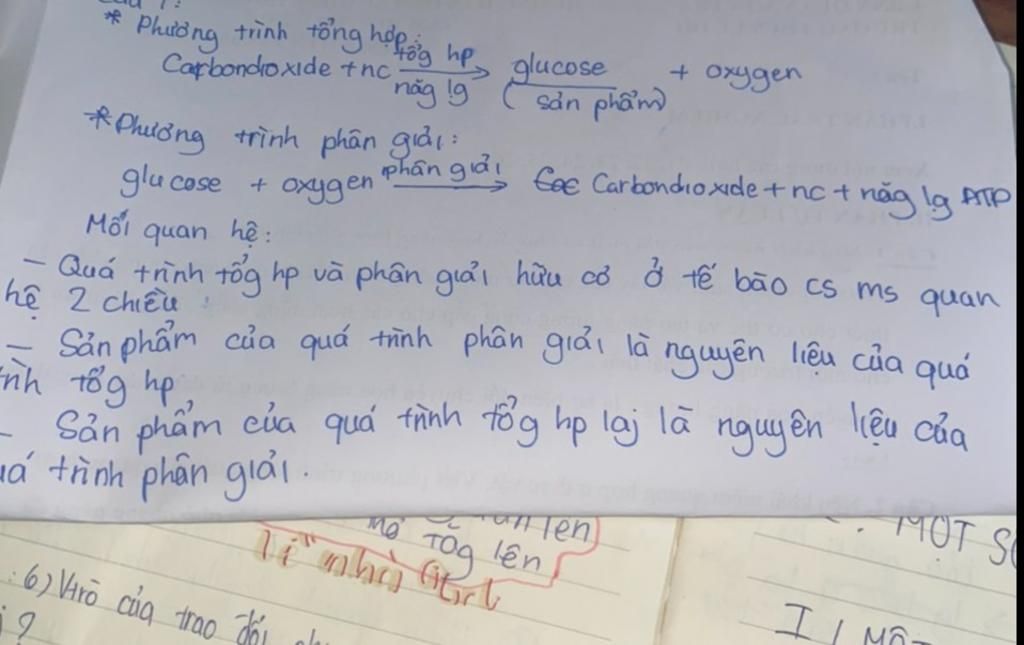 * Phương trình tổng hợp:
Carbondioxide + nc tổg hp năg lg → glucose (sản phẩm) + oxygen
* Phương trình phân giải:
glucose + oxygen phân giải → Carbondioxide + nc + năg lg ATP
Mối quan hệ:
- Quá trình tổg hp và phân giải hữu cơ ở tế bào cs ms quan
hệ 2 chiều:
- Sản phẩm của quá trình phân giải là nguyên liệu của quá
tổg hp
- Sản phẩm của quá trình tổg hp lại là nguyên liệu của
trình phân giải.
tôg lên
MỘT
6) Vtrò của trao đổi
I /